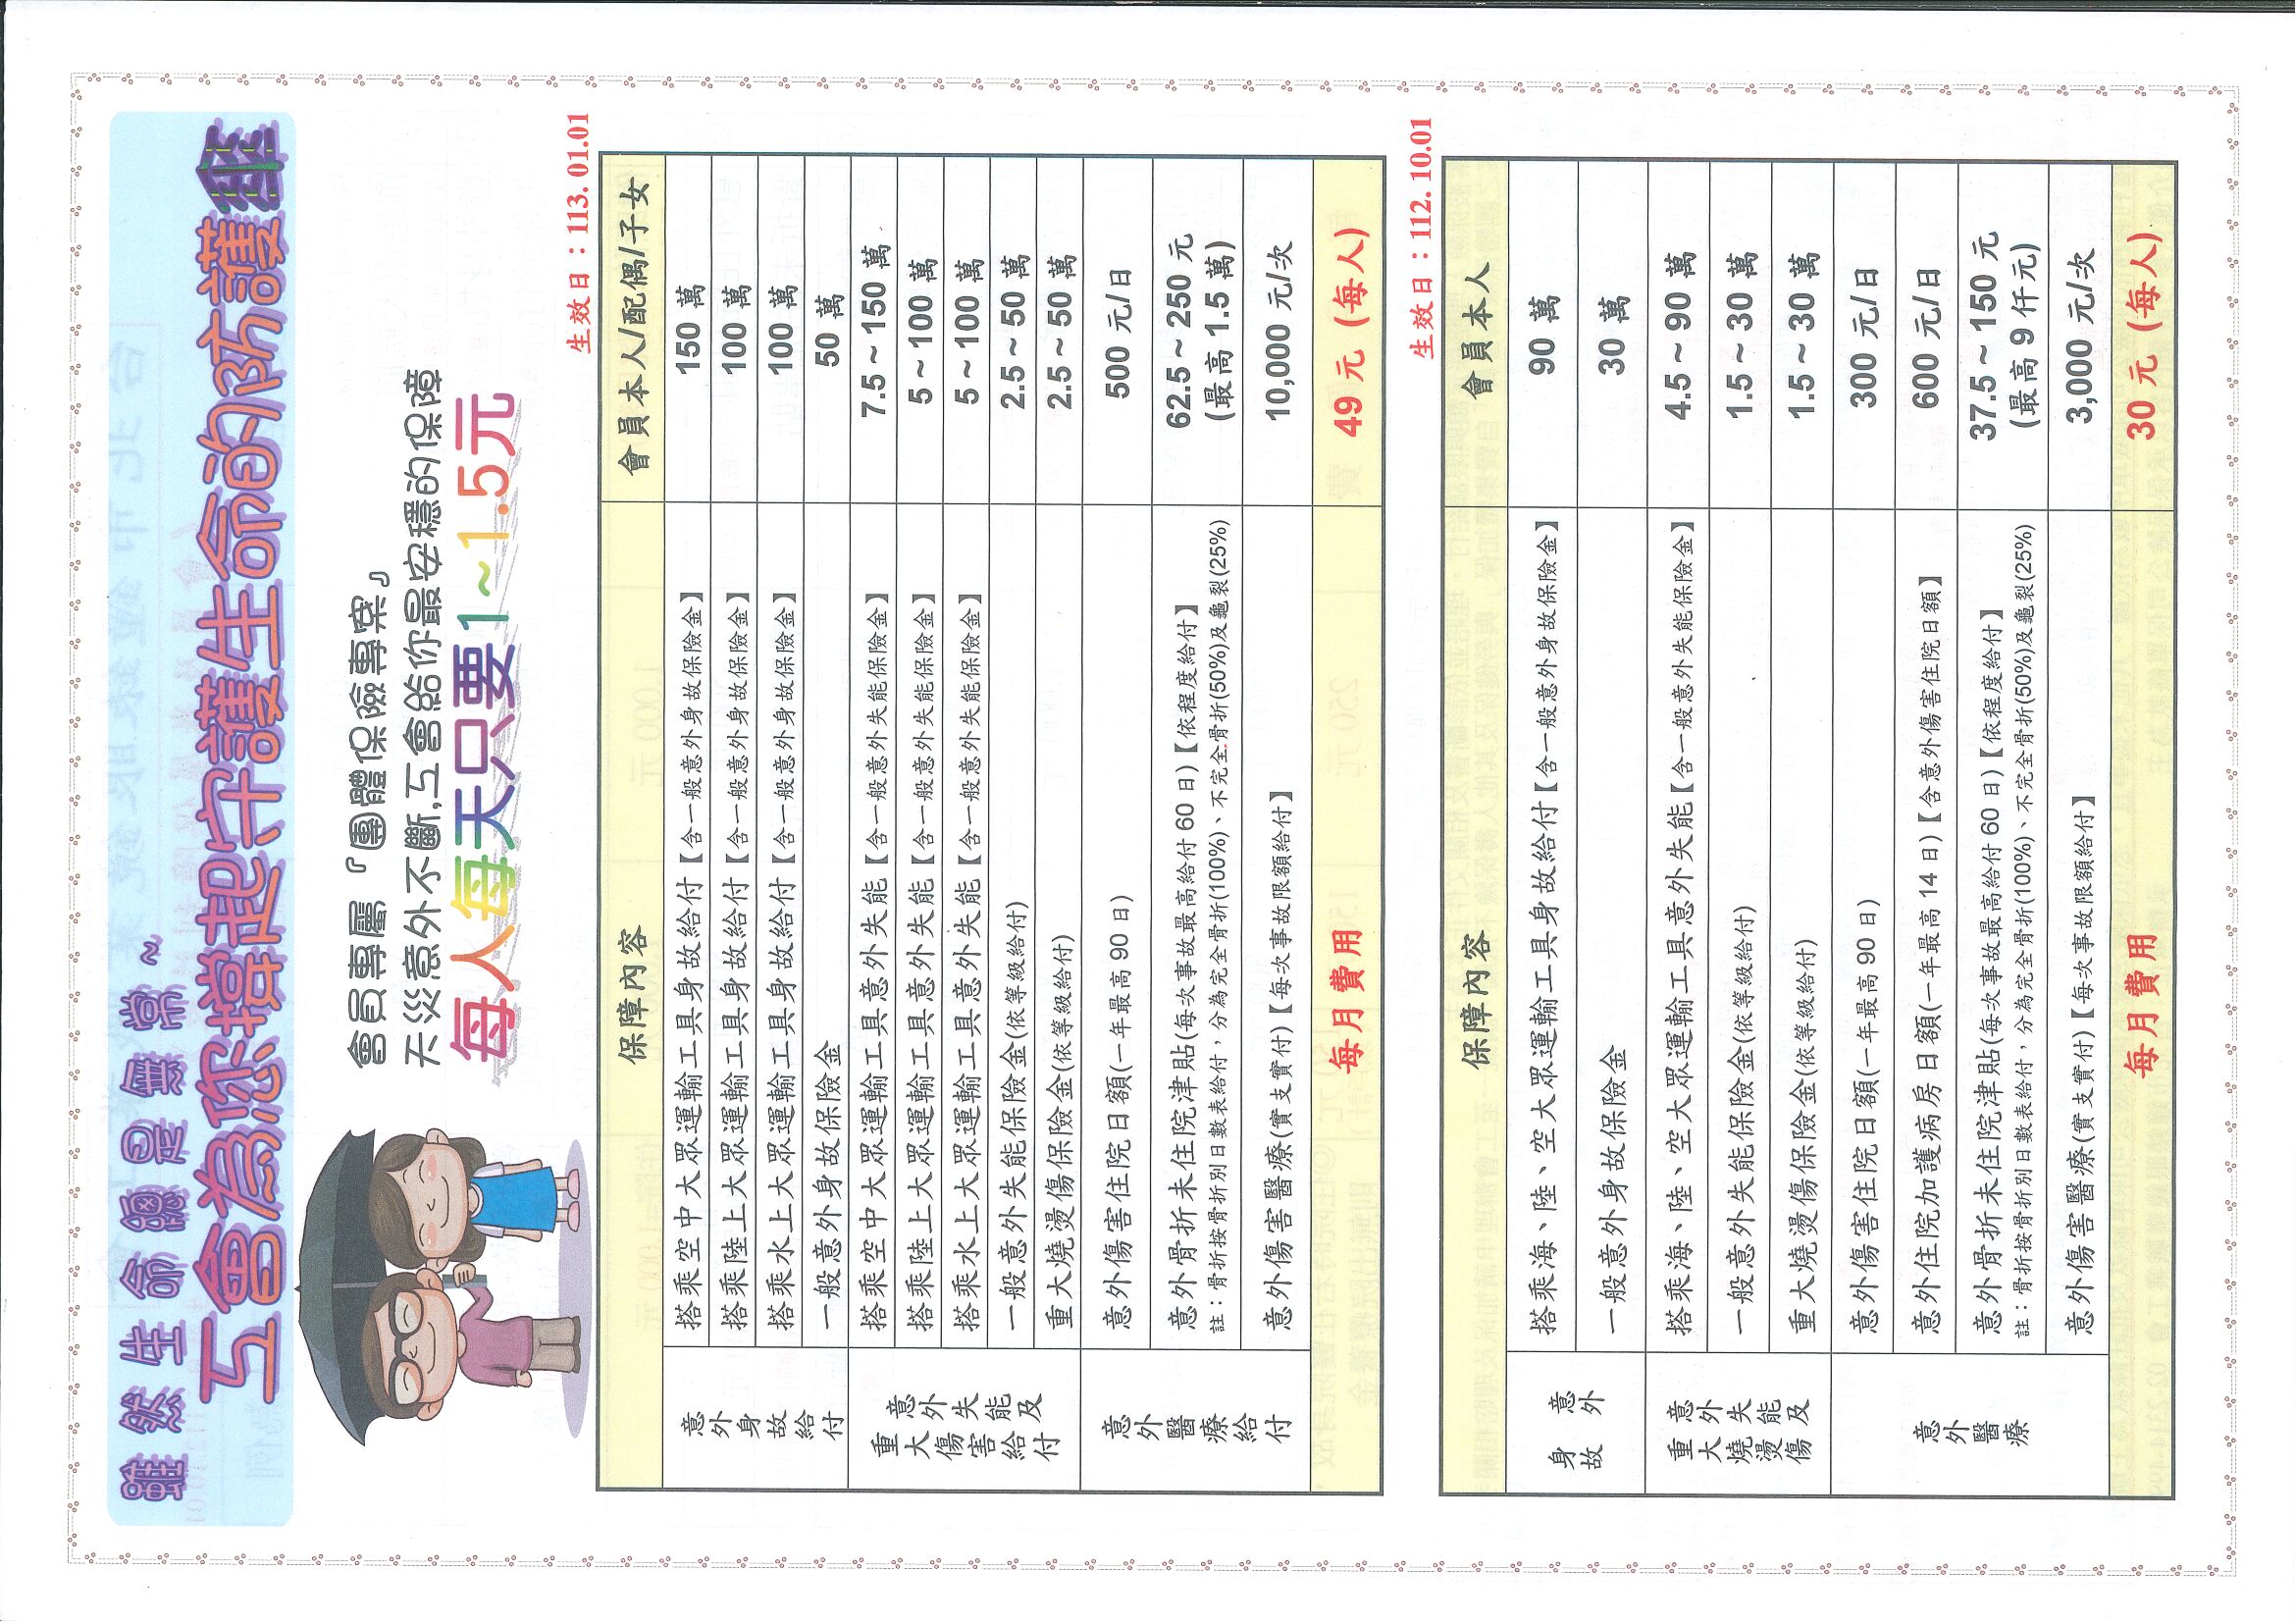 雖然生命總是無常~
工會為您撐起守護生命的防護傘
會員專屬『團體保險專案』
天災意外不斷,工會給你最安穩的保障
每人每天只要1~1.5元
生效日：113.01.01
保障內容 會員本人/配偶/子女
意外身故給付
搭乘空中大眾運輸工具身故給付【含一般意外身故保險金】 150 萬
搭乘陸上大眾運輸工具身故給付【含一般意外身故保險金】 100 萬
搭乘水上大眾運輸工具身故給付【含一般意外身故保險金】 100 萬
一般意外身故保險金 50 萬
意外失能及重大傷害給付
搭乘空中大眾運輸工具意外失能【含一般意外失能保險金】 7.5 ~ 150 萬
搭乘陸上大眾運輸工具意外失能【含一般意外失能保險金】 5 ~ 100 萬
搭乘水上大眾運輸工具意外失能【含一般意外失能保險金】 5 ~ 100 萬
一般意外失能保險金(依等級給付) 2.5 ~ 50 萬
重大燒燙傷保險金(依等級給付) 2.5 ~ 50 萬
意外醫療給付
意外傷害住院日額(一年最高 90 日) 500 元/日
意外骨折未住院津貼(每次事故最高給付 60 日)【依程度給付】 62.5 ~ 250 元
註：骨折按骨折別日數表給付，分為完全骨折(100%)、不完全骨折(50%)及龜裂(25%) (最高 1.5 萬)
意外傷害醫療(實支實付)【每次事故限額給付】 10,000 元/次
每月費用 49 元 (每人)
生效日：112.10.01
保障內容 會員本人
意外身故
搭乘海、陸、空大眾運輸工具身故給付【含一般意外身故保險金】 90 萬
一般意外身故保險金 30 萬
意外失能及重大燒燙傷
搭乘海、陸、空大眾運輸工具意外失能【含一般意外失能保險金】 4.5 ~ 90 萬
一般意外失能保險金(依等級給付) 1.5 ~ 30 萬
重大燒燙傷保險金(依等級給付) 1.5 ~ 30 萬
意外醫療
意外傷害住院日額(一年最高 90 日) 300 元/日
意外住院加護病房日額(一年最高 14 日)【含意外傷害住院日額】 600 元/日
意外骨折未住院津貼(每次事故最高給付 60 日)【依程度給付】 37.5 ~ 150 元
註：骨折按骨折別日數表給付，分為完全骨折(100%)、不完全骨折(50%)及龜裂(25%) (最高 9 仟元)
意外傷害醫療(實支實付)【每次事故限額給付】 3,000 元/次
每月費用 30 元 (每人)